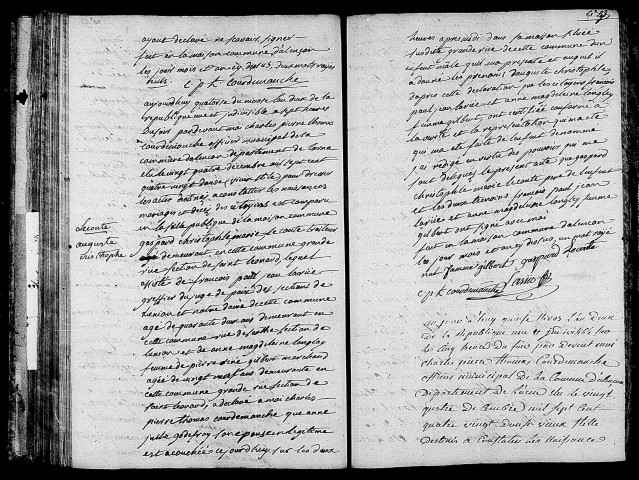 ayant déclaré ne scavoir signer
fait en la maison commune d'alençon
les jour mois et an cy dessus
c p t courdemanche
aujourdhuy quatorze du nivose l'an deux de la
republique une et indivisible a sept heures
du soir pardevant moi charles pierre thomas
courdemanche officier municipal de la
commune d'alençon departement de l'orne
elu le vingt quatre décembre mil sept cent
quatre vingt douze pour dresser
les actes destinés a constater les naissances
mariages et décès des citoyens est comparu
en la salle publique de la maison commune
Leconte
auguste
christophe
gaspard christophle marie le conte traiteur
demeurant en cette commune grande
rue section de saint leonard, lequel
assisté de francois paul jean lariée
greffier du juge de paix des sections de
et notre dame de cette commune
agé de quarante deux ans demeurant en
cette commune rue section de
et de anne magdeleine longley
femme de pierre rené gilbert marchand
agée de vingt neuf ans demeurante en
cette commune grande rue section de
saint leonard, a déclaré a moi charles
pierre thomas courdemanche que anne
julie godefroy son epouse en legitime
est accouchée ce jourdhuy sur les deux
heures apres midi dans sa maison
susdite grande rue de cette commune d'un
enfant male qu'il m'a presenté et auquel il
a donné les prenoms d'auguste christophle
d'apres cette declaration que les citoyens francois
paul jean lariée et anne magdeleine longley
femme gilbert, ont certifiée conforme a
la verité et la representation qui m'a
été faite de l'enfant denommé
j'ai redigé en vertu des pouvoirs qui me
sont delegués le present acte que gaspard
christophle marie le conte pere de l'enfant
et les deux temoins francois paul jean
lariée et anne magdeleine longley femme
gilbert ont signé avec moi
fait en la maison commune d'alençon
les jour mois et an cy dessus, un mot rayé
nul femme gilbert gaspard leconte
c p t courdemanche
aujourd'huy quinze Nivos l'an deux
de la republique une et indivisible sur
les cinq heures du soir par devant moi
charles pierre Thomas Courdemanche
officier municipal de la Commune d'alençon
département de l'orne elu le vingt
quatre décembre mil sept cent
quatre vingt douze
destinés a constater les naissances